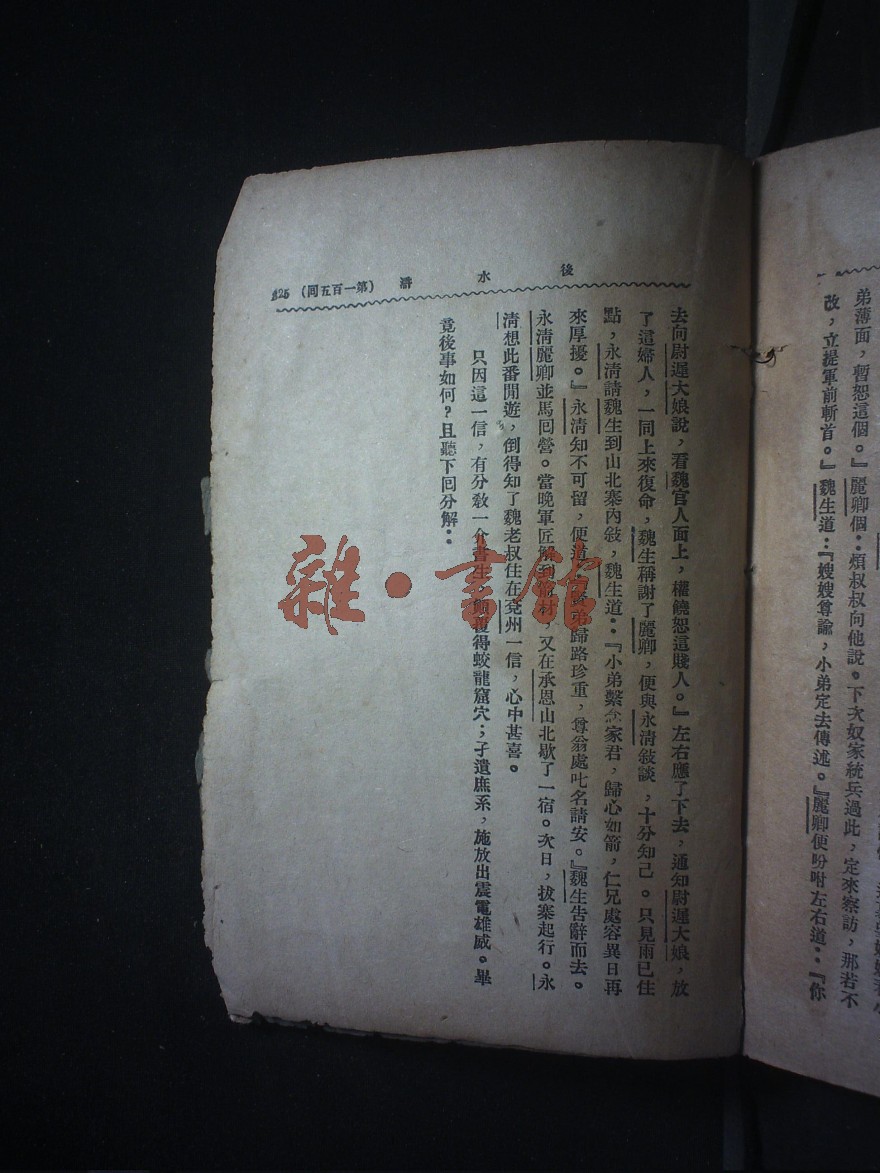 弟薄面，暫恕這個。』麗卿個：煩叔叔向他說。下次奴家統兵過此，定來察訪，那若不
改，立提軍前斬首。』魏生道：『嫂嫂尊諭，小弟定去傳述。』麗卿便吩咐左右道：『你
後水滸 (第一百五回)
去向尉遲大娘說，看魏官人面上，權饒恕這賤人。』左右應了下去，通知尉遲大娘，放
了這婦人，一同上來復命，魏生稱謝了麗卿，便與永清敍談，十分知己。只見雨已住
點，永清請魏生到山北寨內敍，魏生道：『小弟繫念家君，歸心如箭，仁兄處容異日再
來厚擾。』永清知不可留，便道：賢弟歸路珍重，尊翁處叱名請安。』魏生告辭而去。
永清麗卿並馬回營。當晚軍匠解到材，又在承恩山北歇了一宿。次日，拔寨起行。永
清想此番閒遊，倒得知了魏老叔住在兗州一信，心中甚喜。
只因這一信，有分教一介書生，覆得蛟龍窟穴；孑遺庶系，施放出震電雄威。畢
竟後事如何？且聽下回分解：
雜·書館